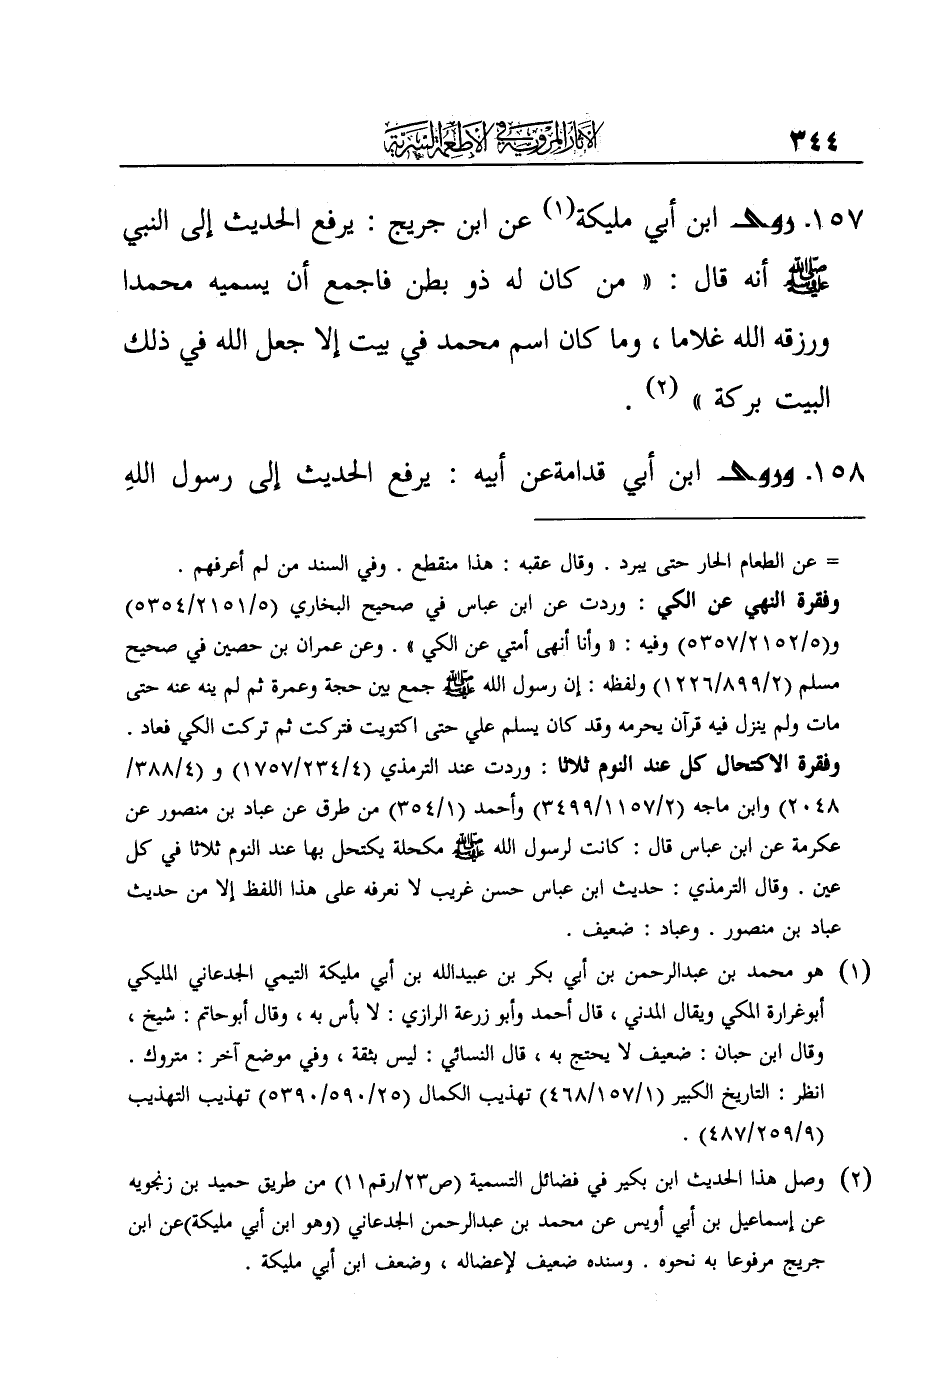 ٣٤٤ الآثار المروية في الأطعمة السرية
١٥٧. روى ابن أبي مليكة(١) عن ابن جريج : يرفع الحديث إلى النبي
ﷺ أنه قال : « من كان له ذو بطن فاجمع أن يسميه محمدا
ورزقه الله غلاما ، وما كان اسم محمد في بيت إلا جعل الله في ذلك
البيت بركة » (٢) .
١٥٨. وروى ابن أبي قدامةعن أبيه : يرفع الحديث إلى رسول اللهِ
= عن الطعام الحار حتى يبرد . وقال عقبه : هذا منقطع . وفي السند من لم أعرفهم .
وفقرة النهي عن الكي : وردت عن ابن عباس في صحيح البخاري (٥/٢١٥١/٥٣٥٤)
و(٥/٢١٥٢/٥٣٥٧) وفيه : « وأنا أنهى أمتي عن الكي » . وعن عمران بن حصين في صحيح
مسلم (٢/٨٩٩/١٢٢٦) ولفظه : إن رسول الله ﷺ جمع بين حجة وعمرة ثم لم ينه عنه حتى
مات ولم ينزل فيه قرآن يحرمه وقد كان يسلم علي حتى اكتويت فتركت ثم تركت الكي فعاد .
وفقرة الاكتحال كل عند النوم ثلاثا : وردت عند الترمذي (٤/٢٣٤/١٧٥٧) و (٤/٣٨٨/
٢٠٤٨) وابن ماجه (٢/١١٥٧/٣٤٩٩) وأحمد (١/٣٥٤) من طرق عن عباد بن منصور عن
عكرمة عن ابن عباس قال : كانت لرسول الله ﷺ مكحلة يكتحل بها عند النوم ثلاثا في كل
عين . وقال الترمذي : حديث ابن عباس حسن غريب لا نعرفه على هذا اللفظ إلا من حديث
عباد بن منصور . وعباد : ضعيف .
(١) هو محمد بن عبدالرحمن بن أبي بكر بن عبيدالله بن أبي مليكة التيمي الجدعاني المليكي
أبوغرارة المكي ويقال المدني ، قال أحمد وأبو زرعة الرازي : لا بأس به ، وقال أبوحاتم : شيخ ،
وقال ابن حبان : ضعيف لا يحتج به ، قال النسائي : ليس بثقة ، وفي موضع آخر : متروك .
انظر : التاريخ الكبير (١/١٥٧/٤٦٨) تهذيب الكمال (٢٥/٥٩٠/٥٣٩٠) تهذيب التهذيب
(٩/٢٥٩/٤٨٧) .
(٢) وصل هذا الحديث ابن بكير في فضائل التسمية (ص٢٣/رقم١١) من طريق حميد بن زنجويه
عن إسماعيل بن أبي أويس عن محمد بن عبدالرحمن الجدعاني (وهو ابن أبي مليكة)عن ابن
جريج مرفوعا به نحوه . وسنده ضعيف لإعضاله ، وضعف ابن أبي مليكة .